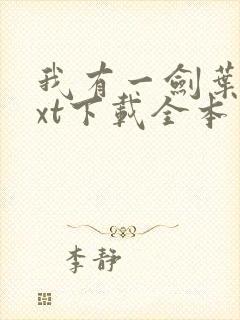 我有一劍葉
xt下載全本
李靜